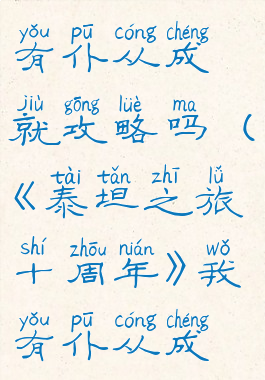 yǒu pū cóng chéng
有仆从成
jiù gōng lüè ma
就攻略吗（
tài tǎn zhī lǚ
《泰坦之旅
shí zhōu nián wǒ
十周年》我
yǒu pū cóng chéng
有仆从成